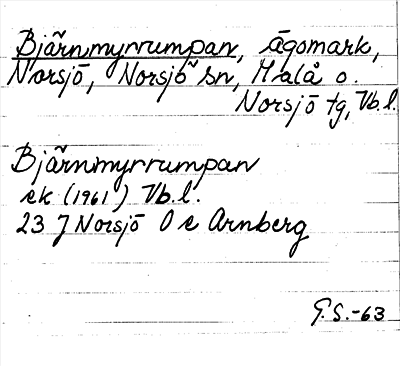 Bjärnmyrrumpan, ägomark,
Norsjö, Norsjö sn, Malå o.
Norsjö tg, Vb.l.
Bjärnmyrrumpan
ek (1961) Vb.l.
23 J Norsjö O e Arnberg
G.S.-63